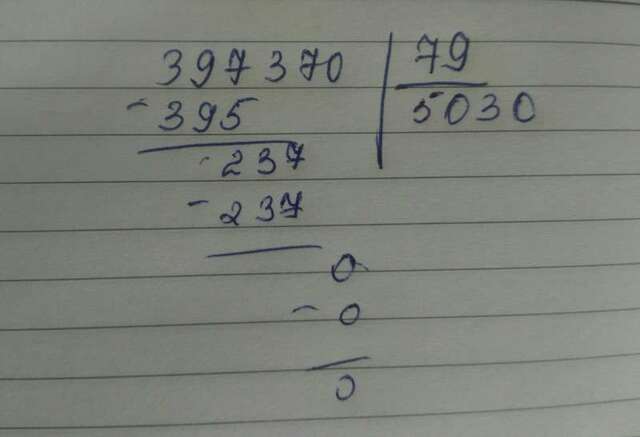 397370 79
- 395 5030
237
- 237
0
- 0
0